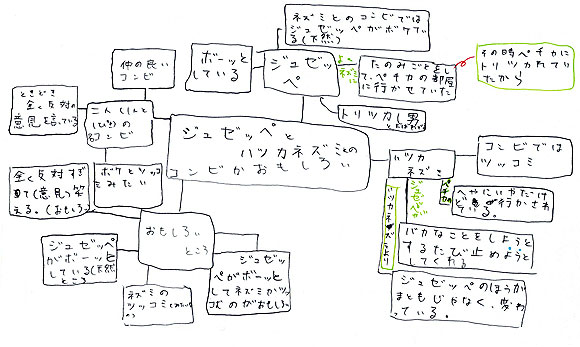 ネズミとのコンビでは
ジュゼッペがボケてい
る(天然)
ボーッと
している
ジュゼッ
ペ
よく
ネズミに
たのみごとをし
て、ペチカの部屋
に行かせていた
その時ペチカに
トリツカれてい
たから
トリツカレ男
仲の良い
コンビ
ときどき
全く反対の
意見を言っている
二人(1人と
1ぴき)の
名コンビ
ジュゼッペと
ハツカネズミとの
コンビがおもしろい
全く反対すぎ
て(意見)笑
える。(おもしろい
ボケとツッコ
ミみたい
おもしろい
ところ
ジュゼッペ
がボーッと
している(天然
ところ
ネズミの
ツッコミ
ジュゼッ
ペがボーッと
してネズミがツッ
コむのがおもしろい
ハツカ
ネズミ
コンビでは
ツッコミ
へやにいやだけ
ど 行かされ
ている。
ジュゼッペが
ハツカネズミより
バカなことをしようと
するたび止めようと
してくれる
ジュゼッペのほうが
まともじゃなく、変わ
っている。